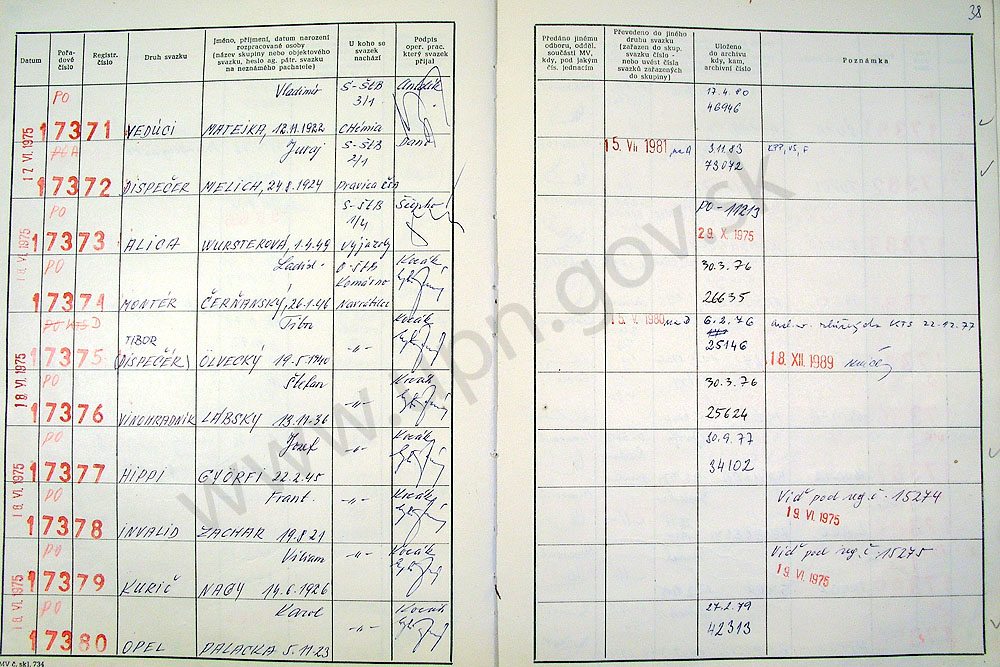 38
Datum
Pořa-
dové
číslo
Registr.
číslo
Druh svazku
Jméno, příjmení, datum narození
rozpracované osoby
(název skupiny nebo objektového
svazku, heslo ag. pátr. svazku
na neznámého pachatele)
U koho se
svazek
nachází
Podpis
oper. prac.
který svazek
přijal
Předáno jinému
odboru, odděl.
součásti MV,
kdy, pod jakým
čís. jednacím
Převedeno do jiného
druhu svazku
(zařazen do skup.
svazku číslo –
nebo uvést čísla
svazků zařazených
do skupiny)
Uloženo
do archívu
kdy, kam,
archivní číslo
Poznámka
17. VI. 1975
PO
17371
VEDÚCI
Vladimír
MATEJKA, 12.11.1922
S-ŠtB
3/1
CHémia
17.4.80
46946
17372
DISPEČER
Juraj
MELICH, 24.8.1924
S-ŠtB
2/1
Pravica
15. VII. 1981
3.11.83
73072
18. VI. 1975
PO
17373
ALICA
WURSTEROVÁ, 1.4.49
S-ŠtB
1/4
Výjazdy
PO - 11213
29. X. 1975
PO
17374
MONTÉR
Ladisl.
ČERŇANSKÝ, 26.1.46
O-ŠtB
Komárno
30.3.76
26635
18. VI. 1975
17375
TIBOR
(DISPEČER)
Tibor
ÖLVECKÝ 19.5.1940
-„-
Kovák
15. V. 1980
6.2.76
25146
KTS 22.12.77
18. XII. 1989
PO
17376
VINOHRADNÍK
Štefan
LÁBSKY 13.11.36
-„-
Kovák
30.3.76
25624
18. VI. 1975
PO
17377
HIPPI
Jozef
GYÖRFI 22.2.45
-„-
Kovák
30.9.77
34102
PO
17378
INVALID
Frant.
ZACHAR 19.8.21
-„-
Kovák
Viď pod reg. č. 15274
19. VI. 1975
18. VI. 1975
PO
17379
KURIČ
Viliam
NAGY 14.6.1926
-„-
Kovák
Viď pod reg. č. 15275
19. VI. 1975
PO
17380
OPEL
Karol
PALACKA 5.11.23
-„-
Kovák
27.2.79
42313
MV č. skl. 734
www.upn.gov.sk